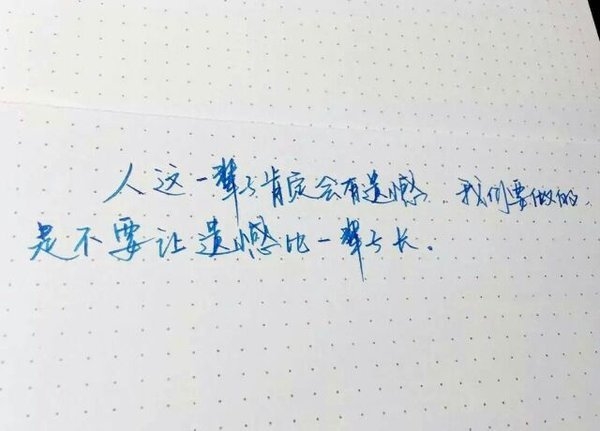 人这一辈子肯定会有遗憾.我们要做的.
是不要让遗憾比一辈子长.